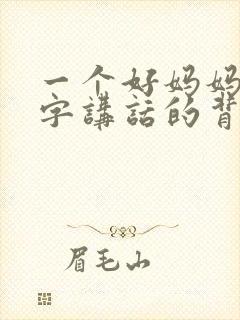 一个好妈妈
字講話的背
眉毛山